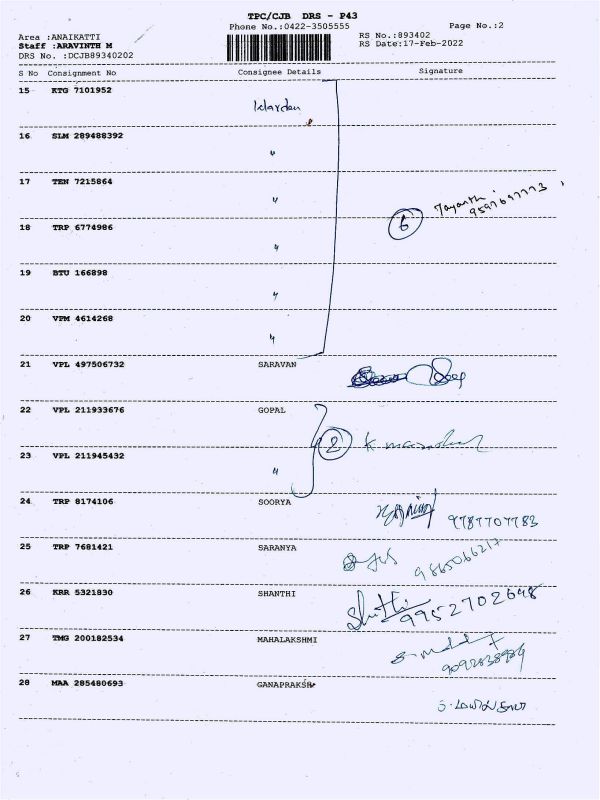 TPC/CJB DRS - P43
Phone No.:0422-3505555 Page No.:2
Area :ANAIKATTI RS No.:893402
Staff :ARAVINTH M RS Date:17-Feb-2022
DRS No. :DCJB89340202
S No Consignment No Consignee Details Signature
15 KTG 7101952
16 SLM 289488392 "
17 TEN 7215864 "
18 TRP 6774986 " 6
19 BTU 166898 "
20 VPM 4614268 "
21 VPL 497506732 SARAVAN
22 VPL 211933676 GOPAL
2
23 VPL 211945432 "
24 TRP 8174106 SOORYA 9787707783
25 TRP 7681421 SARANYA 9865066217
26 KRR 5321830 SHANTHI 9952702648
27 TMG 200182534 MAHALAKSHMI
28 MAA 285480693 GANAPRAKSH